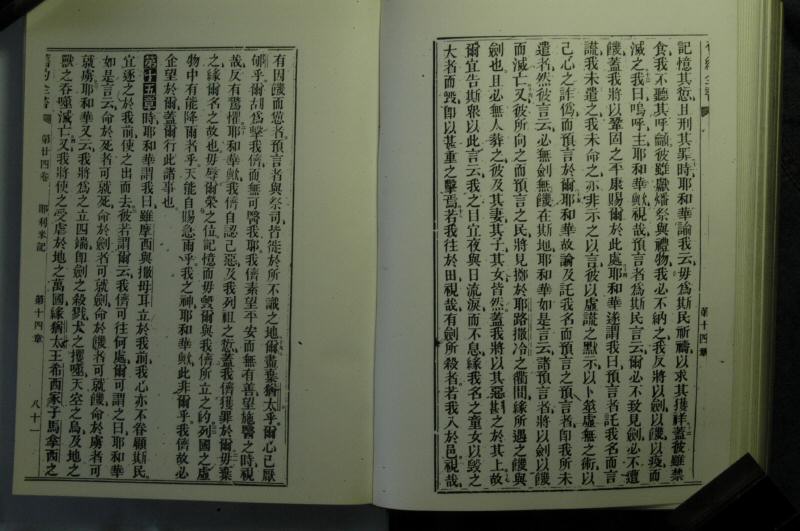 舊約全書
第十四章
記憶其愆且刑其罪時耶和華諭我云毋為斯民祈禱以求其獲祥蓋彼雖禁
食我不聽其呼籲彼雖獻燔祭與禮物我必不納之我反將以劍以饑以疫而
滅之我曰嗚呼主耶和華歟視哉預言者為斯民言云爾必不致見劍必不遭
饑蓋我將以鞏固之平康賜爾於此處耶和華遂謂我曰預言者託我名而言
謊我未遣之我未命之亦非示之以言彼以虛謊之默示以卜筮虛無之術以
己心之詐偽而預言於爾耶和華故論及託我名而預言之預言者即我所未
遣者然彼言云必無劍無饑在斯地耶和華如是言云諸預言者將以劍以饑
而滅亡又彼所向之而預言之民將見擲於耶路撒冷之衢間緣所遇之饑與
劍也且必無人葬之彼及其妻其子其女皆然蓋我將以其惡斟之於其上故
爾宜告斯眾以此言云我之目宜夜與日流淚而不息緣我名之童女以毀之
大者而毀即以甚重之擊焉若我往於田視哉有劍所殺者若我入於邑視哉
有因饑而憊者預言者與祭司皆徙於所不識之地爾盡棄猶太乎爾心已厭
郇乎爾胡為擊我儕而無可醫我耶我儕素望平安而無有善望施醫之時視
哉反有驚懼耶和華歟我儕自認己惡及我列祖之愆蓋我儕獲罪於爾毋棄
之緣爾名之故也毋辱爾榮之位記憶而毋毀爾與我儕所立之約列國之虛
物中有能降雨者乎天能自賜急雨乎我之神耶和華歟此非爾乎我儕故必
企望於爾蓋爾行此諸事也
第十五章時耶和華謂我曰雖摩西與撒母耳立於我前我心亦不眷顧斯民
宜逐之於我前使之出而去彼若謂爾云我儕可往何處爾可謂之曰耶和華
如是言云命於死者可就死命於劍者可就劍命於饑者可就饑命於虜者可
就虜耶和華又云我將為之立四端即劍之殺戮犬之攫噬天空之鳥及地之
獸之吞噬滅亡又我將使之受虐於地之萬國緣猶太王希西家子馬拿西之
舊約全書
第廿四卷
耶利米記
第十四章
八十一